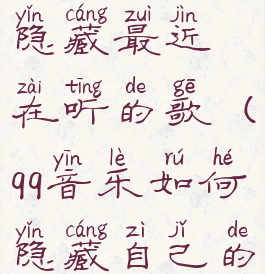 yǐn cáng zuì jìn
隐藏最近
zài tīng de gē
在听的歌（
yīn lè rú hé
qq音乐如何
yǐn cáng zì jǐ de
隐藏自己的